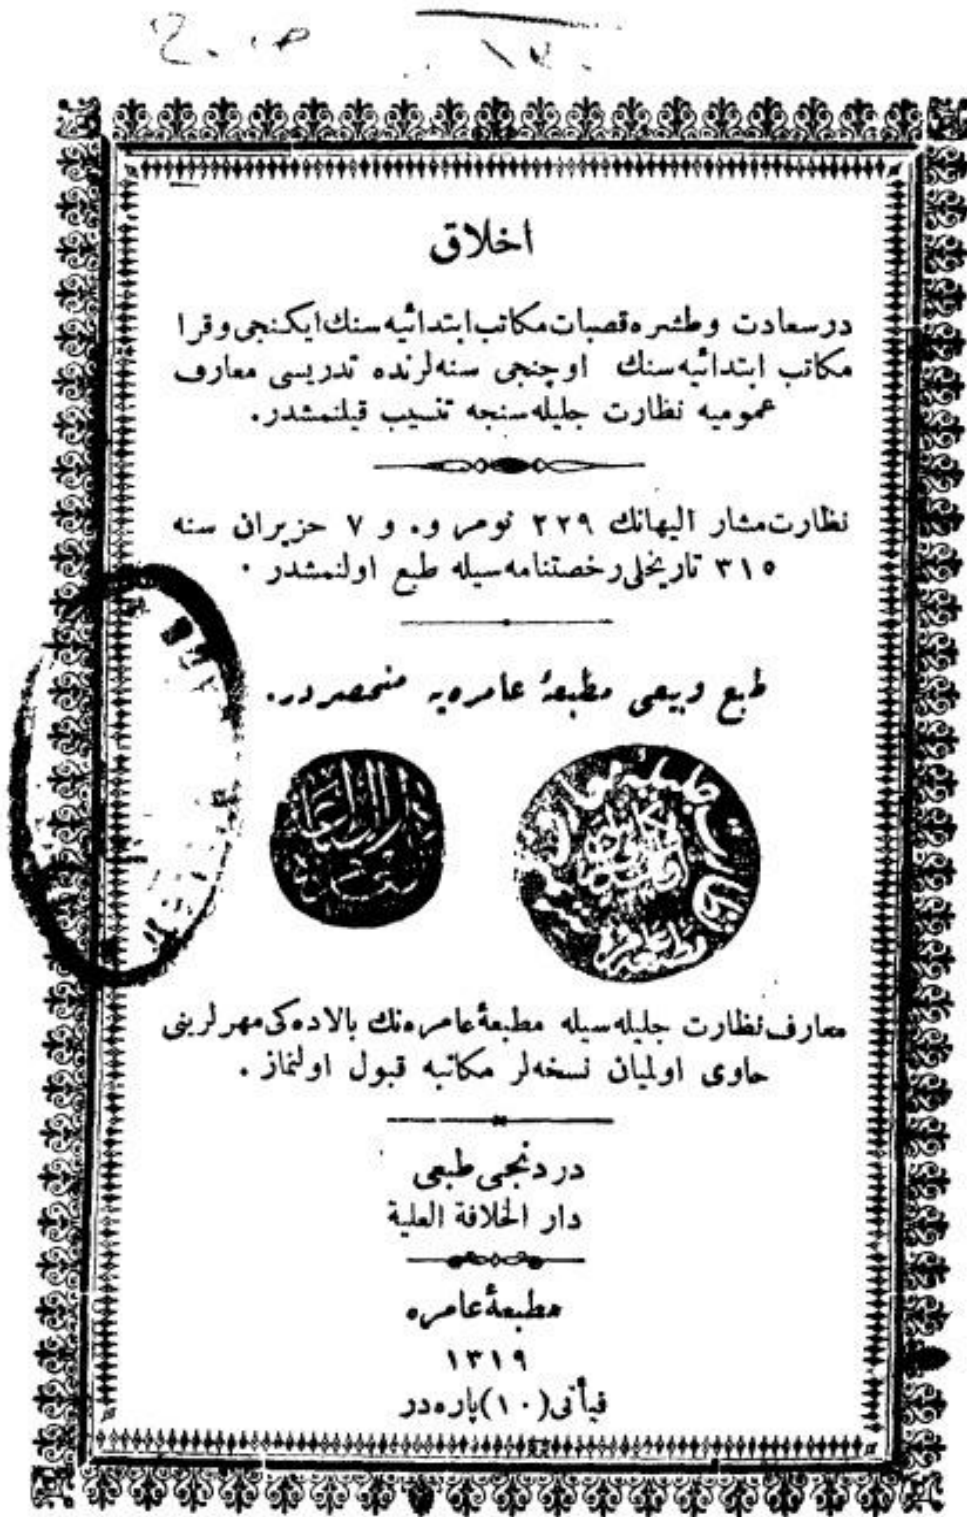 اخلاق
درسعادت وطشره قصبات مكاتب ابتدائيه سنك ايكنجى وقرا
مكاتب ابتدائيه سنك اوچنجى سنه لرنده تدريسى معارف
عموميه نظارت جليله سنجه تنسيب قيلنمشدر.
نظارت مشار اليهانك ٢٢٩ نومرو. و ٧ حزيران سنه
٣١٥ تاريخلى رخصتنامه سيله طبع اولنمشدر ٠
طبع وبيعى مطبعۀ عامره يه منحصردر.
معارف نظارت جليله سيله مطبعۀ عامره نك بالاده كى مهرلرينى
حاوى اولميان نسخه لر مكاتبه قبول اولنماز .
دردنجى طبعى
دار الخلافة العلية
مطبعۀ عامره
١٣١٩
فيأتى (١٠) پاره در